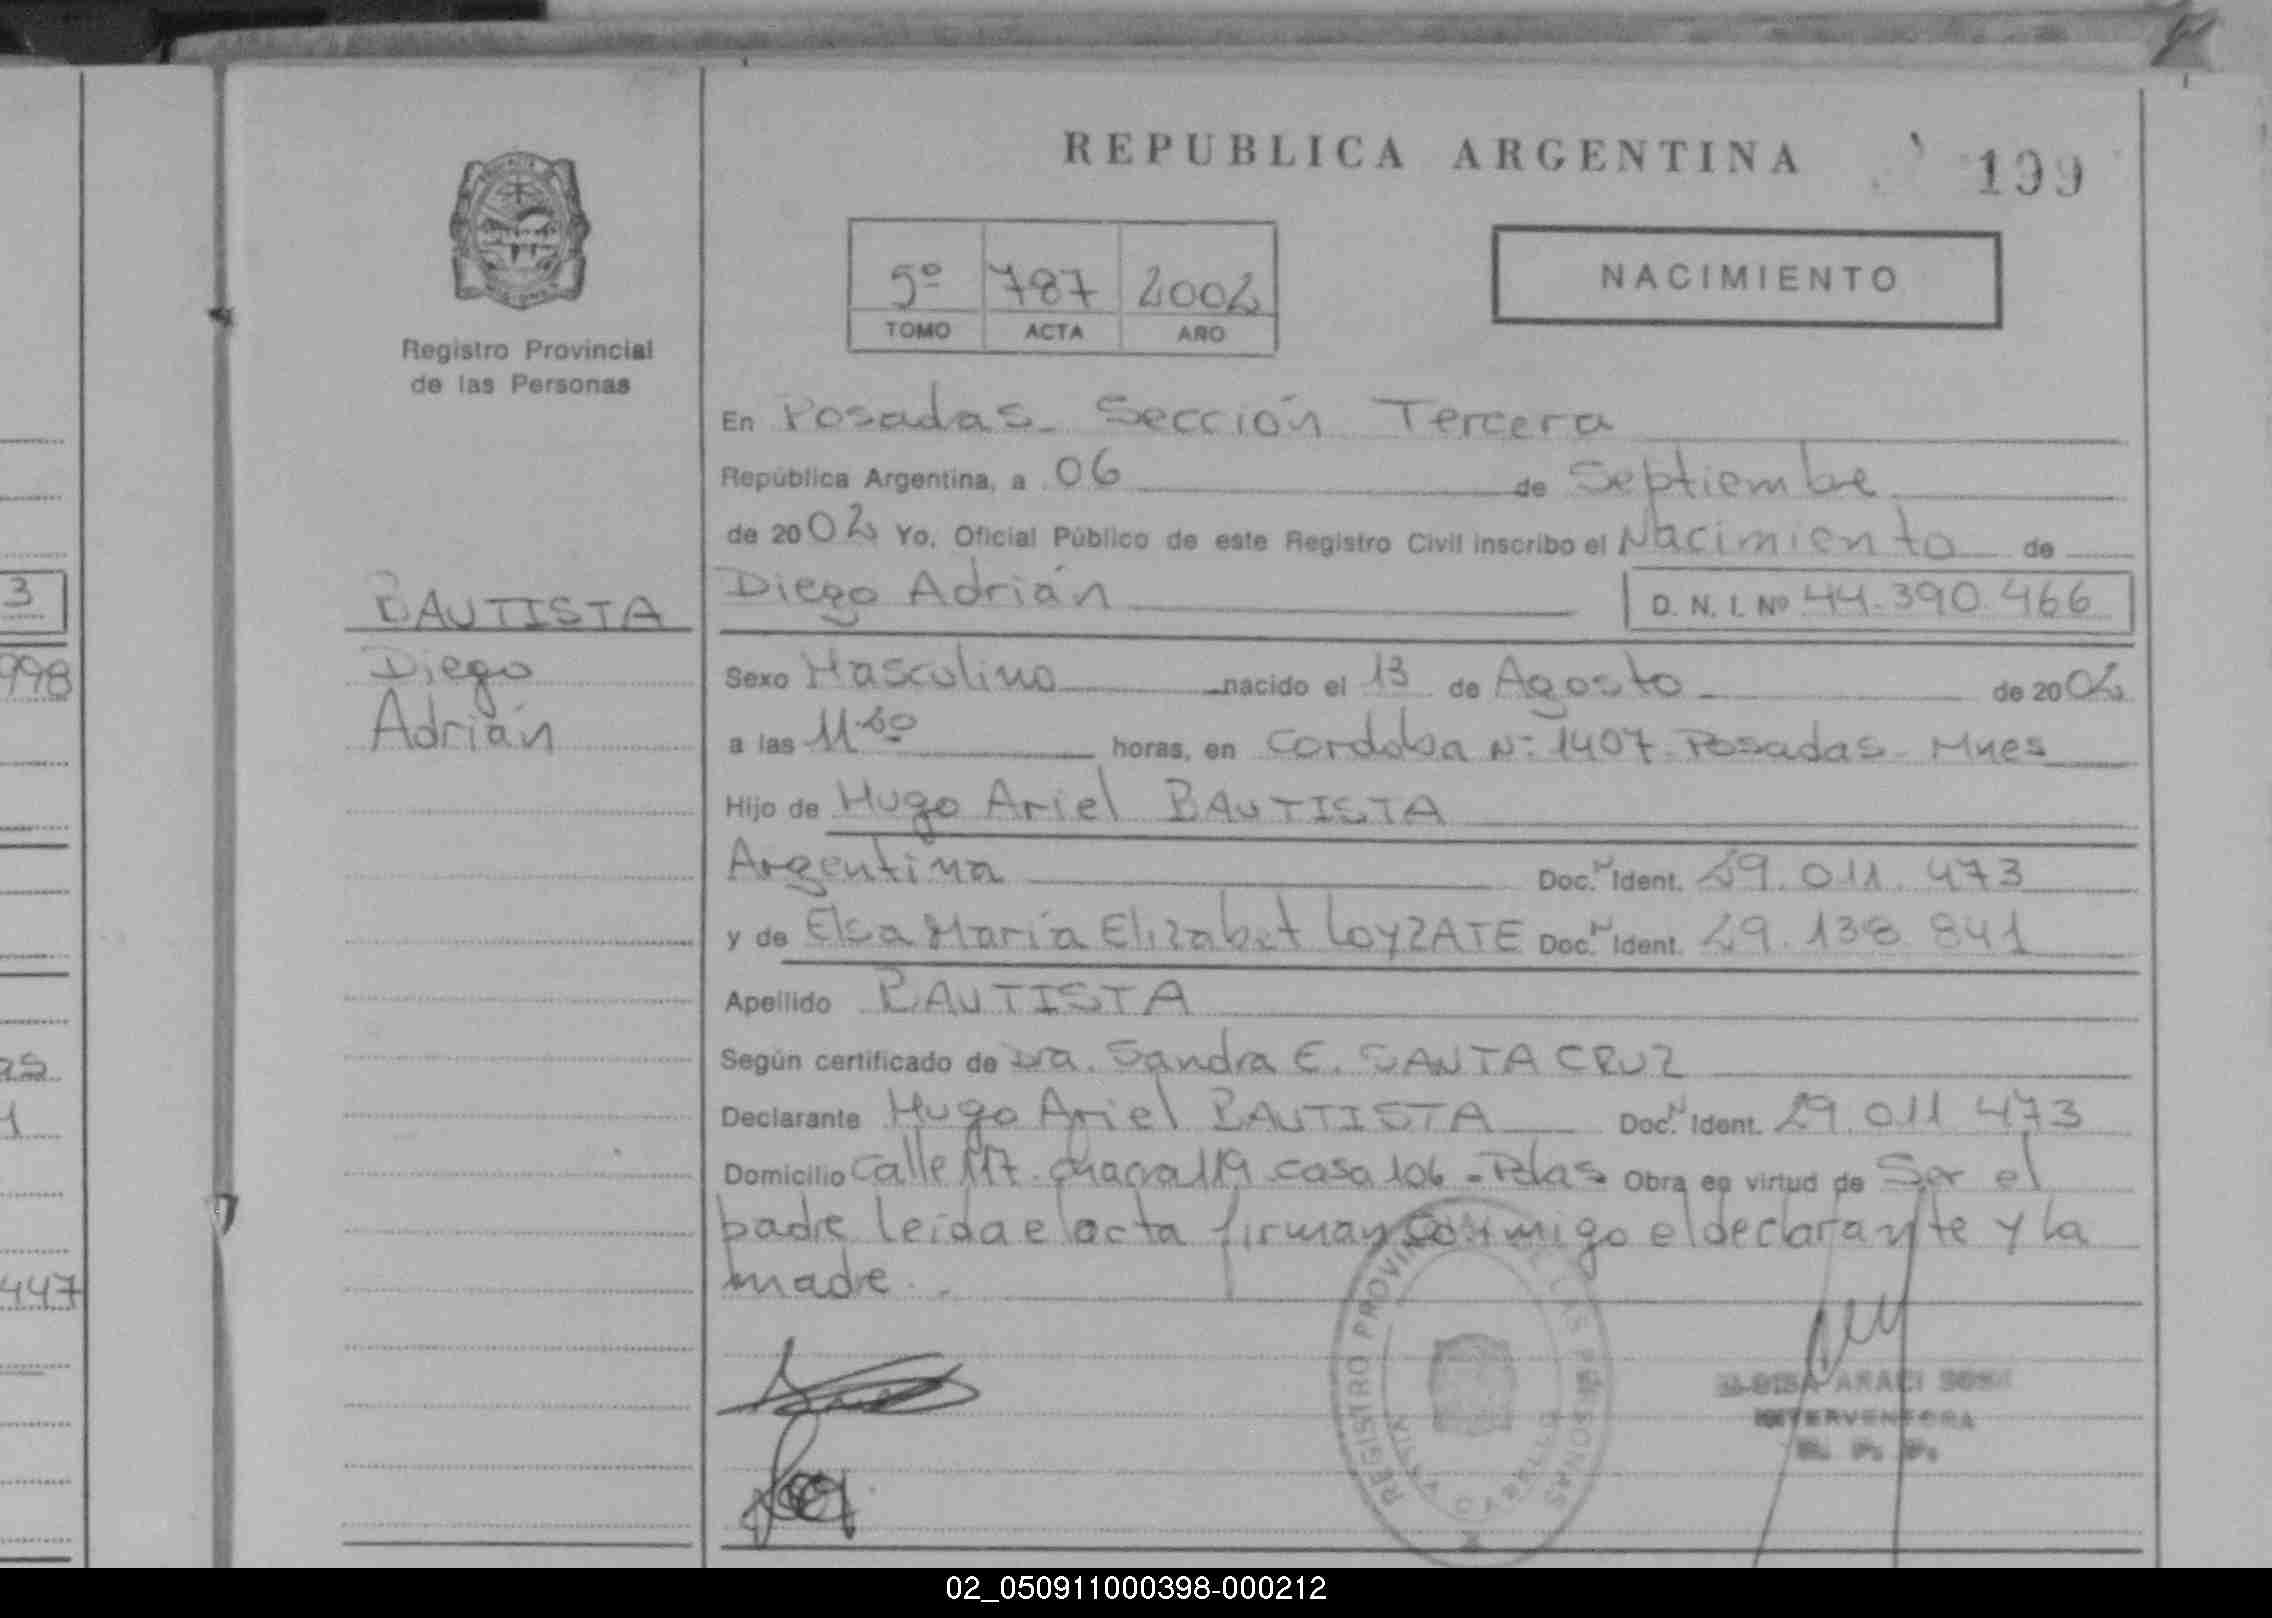 REPUBLICA ARGENTINA
199
5º 787 2002
TOMO ACTA AÑO
NACIMIENTO
Registro Provincial
de las Personas
En Posadas - Sección Tercera
República Argentina, a 06 de Septiembre
de 2002 Yo, Oficial Público de este Registro Civil inscribo el Nacimiento de
BAUTISTA
Diego Adrián D. N. I. Nº 44.390.466
3
998
Diego
Adrián
Sexo Masculino nacido el 13 de Agosto de 2002
a las 11 horas, en Cordoba Nº 1407 - Posadas - Mnes
Hijo de Hugo Ariel BAUTISTA
Argentina Doc. N Ident. 29.011.473
y de Elsa María Elizabet LoyZATE Doc. N Ident. 29.138.841
Apellido BAUTISTA
Según certificado de Dra. Sandra E. SANTA CRUZ
as
1
Declarante Hugo Ariel BAUTISTA Doc. N Ident. 29.011.473
Domicilio Calle 117 - chacra 119 casa 106 - Pdas - Obra en virtud de Ser el
padre leída el acta firman conmigo el declarante y la
447
madre.
REGISTRO PROVINCIAL DE LAS PERSONAS
ARACI SOSA
INTERVENTORA
R. P. P.
02_050911000398-000212